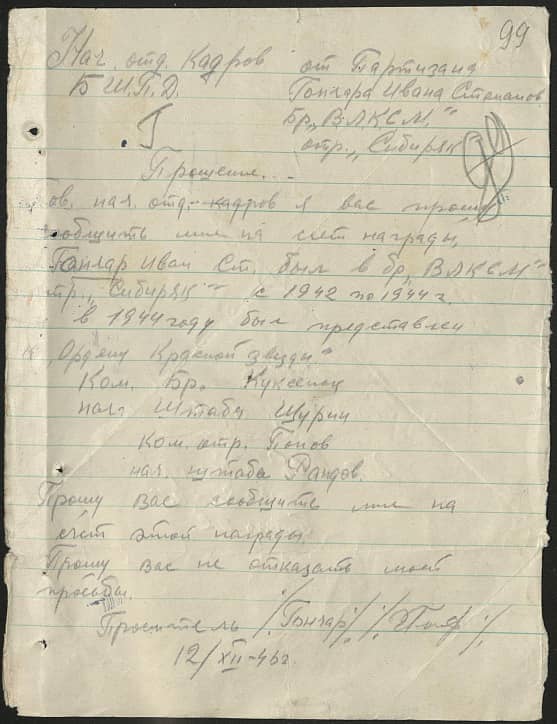 99
Нач. отд. Кадров от Партизана
Б.Ш.П.Д. Гончара Ивана Степанов.
Бр. „В.Л.К.С.М."
отр. „Сибиряк"
Прошение.
Тов. нач. отд. кадров я вас прошу
сообщить мне на счет награды,
Гончар Иван Ст. был в бр. „ВЛКСМ"
отр. „Сибиряк" с 1942 по 1944 г.
в 1944 году был представлен
к „Ордену Красной звезды"
Ком. Бр. Куксенок
нач. Штаба Щурин
Ком. отр. Попов
нач. штаба
Прошу вас сообщить мне на
счёт этой награды
Прошу вас не отказать моей
просьбы.
Проситель /Гончар/
12/XII-46г.